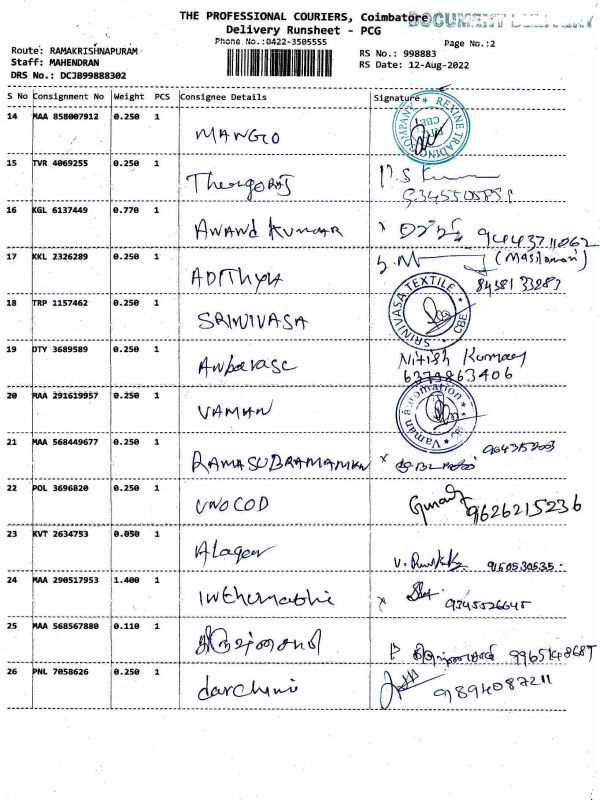 THE PROFESSIONAL COURIERS, Coimbatore
DOCUMENT DELIVERY
Delivery Runsheet - PCG
Phone No.:0422-3505555
Page No.:2
Route: RAMAKRISHNAPURAM
Staff: MAHENDRAN
DRS No.: DCJB99888302
RS No.: 998883
RS Date: 12-Aug-2022
S No Consignment No Weight PCS Consignee Details Signature
14 MAA 858007912 0.250 1 MANGO
REXINE TRADING COMPANY CBE
15 TVR 4069255 0.250 1
16 KGL 6137449 0.770 1 ANAND KUMAR 9443711062
17 KKL 2326289 0.250 1 ADITHYA (Masilamani)
84381 33283
18 TRP 1157462 0.250 1 SRINIVASA
SRINIVASA TEXTILE CBE
19 DTY 3689589 0.250 1 Nitish Kumar
6379863406
20 MAA 291619957 0.250 1 VAMAN
Vaman automation CBE
21 MAA 568449677 0.250 1 RAMASUBRAMANIAN
22 POL 3696820 0.250 1 UNOCOD 9626215236
23 KVT 2634753 0.050 1 Alagar
24 MAA 290517953 1.400 1 9345526645
25 MAA 568567880 0.110 1
26 PNL 7058626 0.250 1 darchini 9894087211